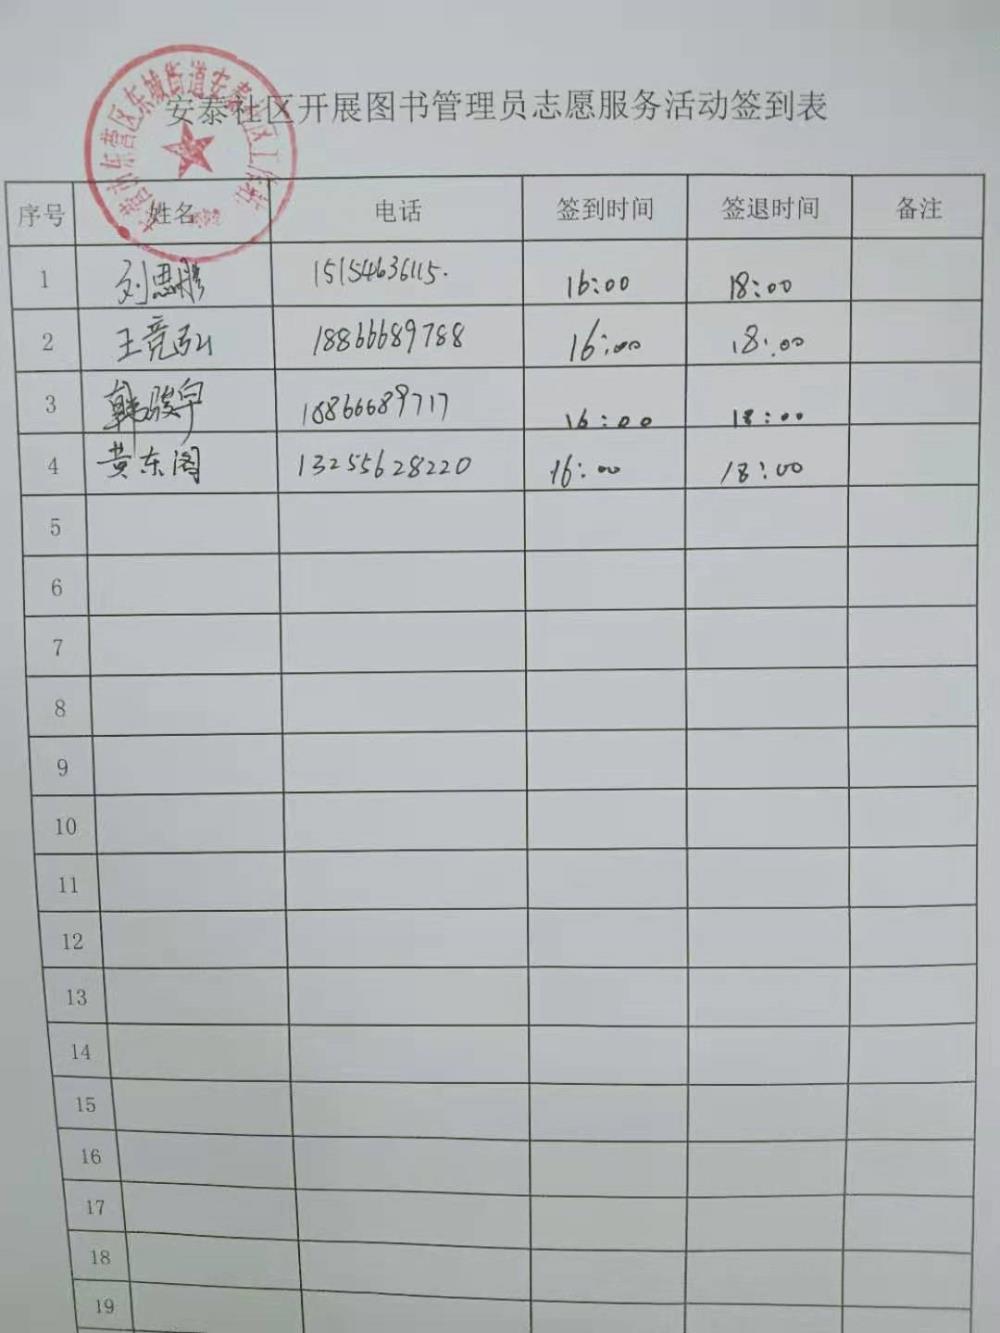 安泰社区开展图书管理员志愿服务活动签到表
序号 姓名 电话 签到时间 签退时间 备注
1 刘思彤 15154636115. 16:00 18:00
2 王竞弘 18866689788 16:00 18:00
3 韩骏宇 18866689717 16:00 18:00
4 黄东阁 13255628220 16:00 18:00
5
6
7
8
9
10
11
12
13
14
15
16
17
18
19